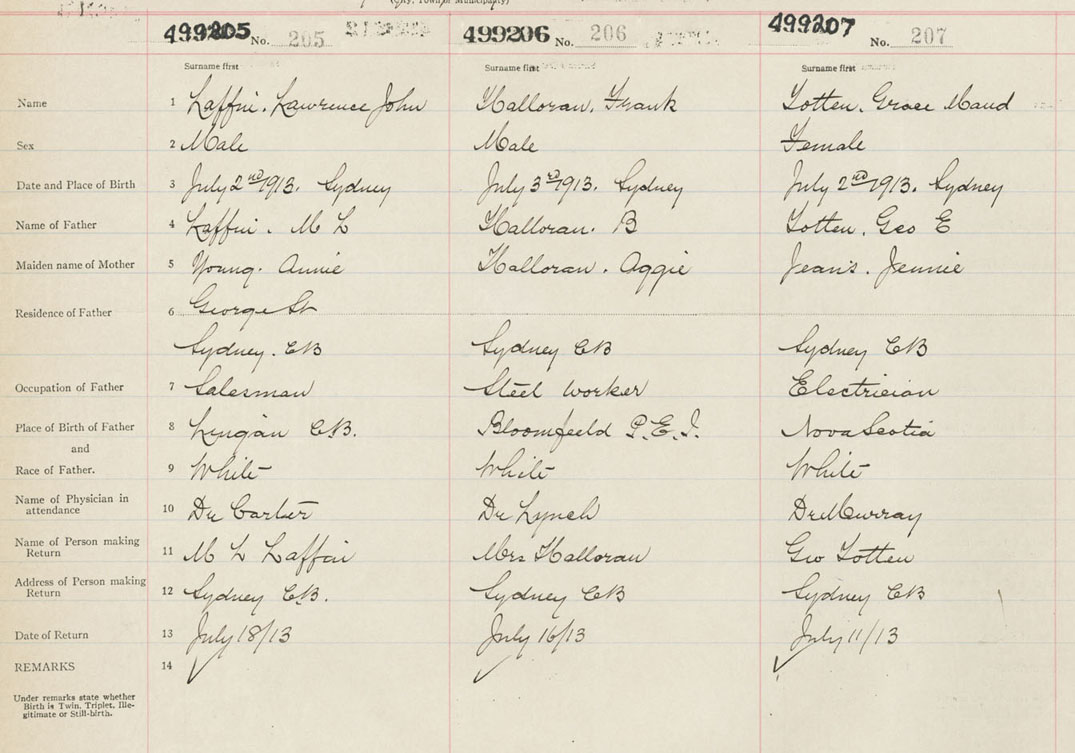 (City, Town or Municipality)
499205 No. 205 499206 No. 206 499207 No. 207
Surname first Surname first Surname first
Name 1 Laffin, Lawrence John Halloran, Frank Totten, Grace Maud
Sex 2 Male Male Female
Date and Place of Birth 3 July 2nd 1913. Sydney July 3rd 1913. Sydney July 2nd 1913. Sydney
Name of Father 4 Laffin, M L Halloran. B Totten, Geo E
Maiden name of Mother 5 Young. Annie Halloran, Aggie Jeans. Jennie
Residence of Father 6 George St
Sydney. CB Sydney CB Sydney CB
Occupation of Father 7 Salesman Steel Worker Electrician
Place of Birth of Father 8 Lingan C.B. Bloomfield P.E.I. Nova Scotia
and
Race of Father. 9 White White White
Name of Physician in
attendance 10 Dr Carter Dr Lynch Dr Murray
Name of Person making
Return 11 M L Laffin Mrs Halloran Geo Totten
Address of Person making
Return 12 Sydney C.B. Sydney CB Sydney CB
Date of Return 13 July 18/13 July 16/13 July 11/13
REMARKS 14
Under remarks state whether
Birth is Twin, Triplet, Ille-
gitimate or Still-birth.